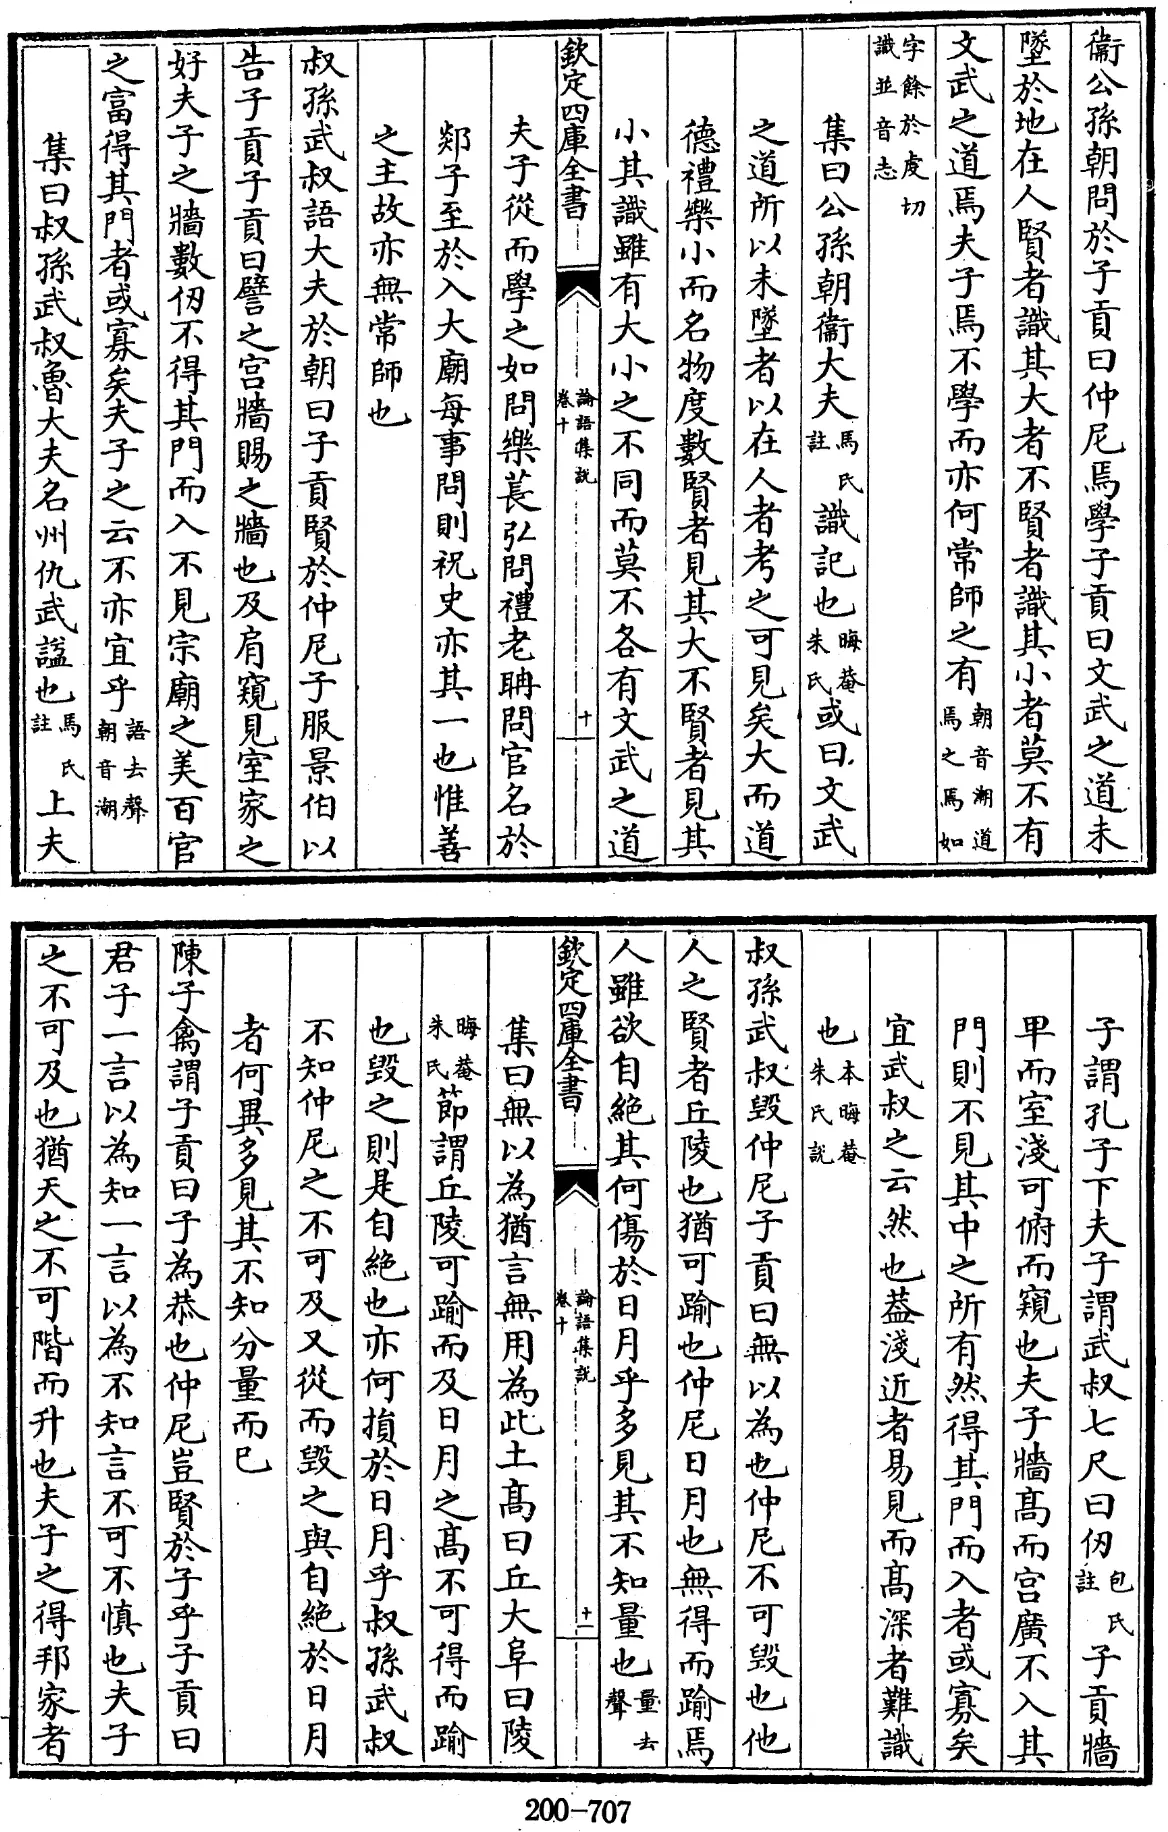 衞公孫朝問於子貢曰仲尼焉學子貢曰文武之道未
墜於地在人賢者識其大者不賢者識其小者莫不有
文武之道焉夫子焉不學而亦何常師之有朝音潮道焉之焉如
字餘於䖍切識並音志
集曰公孫朝衞大夫馬氏註識記也晦菴朱氏或曰文武
之道所以未墜者以在人者考之可見矣大而道
德禮樂小而名物度數賢者見其大不賢者見其
小其識雖有大小之不同而莫不各有文武之道
欽定四庫全書 論語集說卷十 十
夫子從而學之如問樂萇弘問禮老聃問官名於
郯子至於入大廟每事問則祝史亦其一也惟善
之主故亦無常師也
叔孫武叔語大夫於朝曰子貢賢於仲尼子服景伯以
告子貢子貢曰譬之宫牆賜之牆也及肩窺見室家之
好夫子之牆數仞不得其門而入不見宗廟之美百官
之富得其門者或寡矣夫子之云不亦宜乎語去聲朝音潮
集曰叔孫武叔魯大夫名州仇武諡也馬氏註上夫
子謂孔子下夫子謂武叔七尺曰仞包氏註子貢牆
卑而室淺可俯而窺也夫子牆髙而宫廣不入其
門則不見其中之所有然得其門而入者或寡矣
宜武叔之云然也葢淺近者易見而髙深者難識
也本晦菴朱氏說
叔孫武叔毁仲尼子貢曰無以為也仲尼不可毁也他
人之賢者丘陵也猶可踰也仲尼日月也無得而踰焉
人雖欲自絶其何傷於日月乎多見其不知量也量去聲
欽定四庫全書 論語集說卷十 十一
集曰無以為猶言無用為此土髙曰丘大阜曰陵
晦菴朱氏節謂丘陵可踰而及日月之髙不可得而踰
也毁之則是自絶也亦何損於日月乎叔孫武叔
不知仲尼之不可及又從而毁之與自絶於日月
者何異多見其不知分量而已
陳子禽謂子貢曰子為恭也仲尼豈賢於子乎子貢曰
君子一言以為知一言以為不知言不可不慎也夫子
之不可及也猶天之不可階而升也夫子之得邦家者
200-707